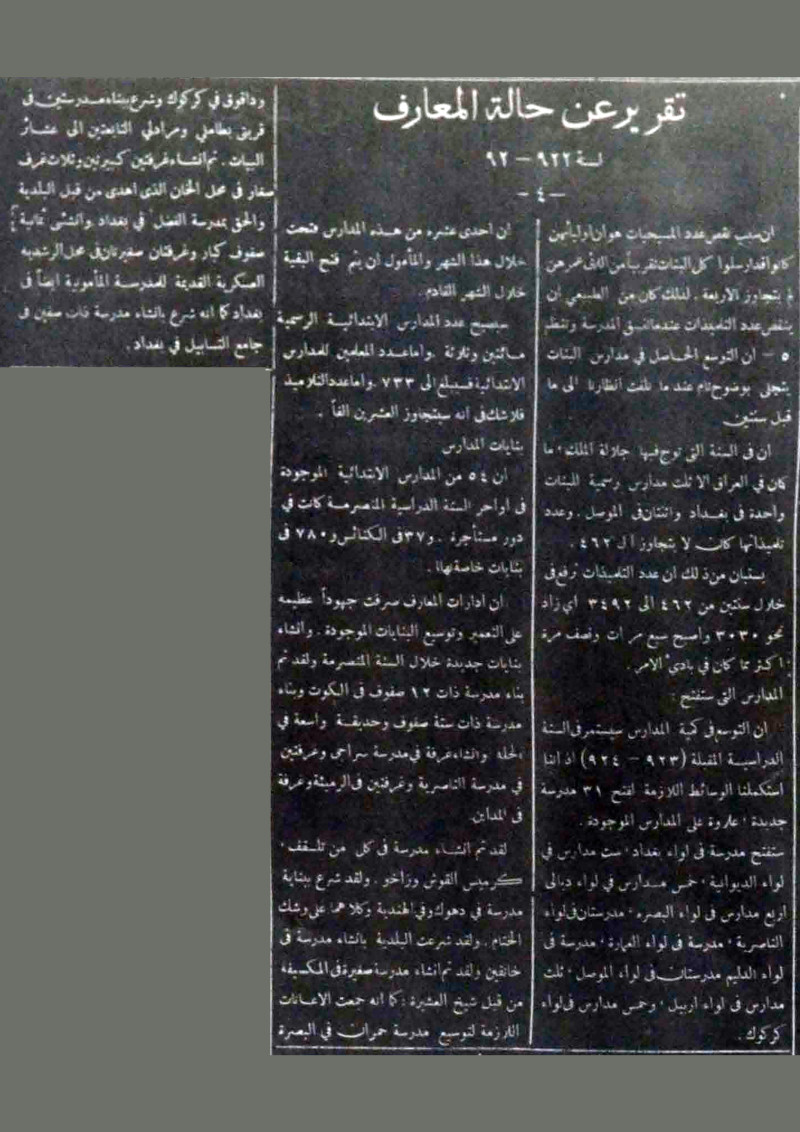 تقرير عن حالة المعارف
لسنة ٩٢٢ — ٩٢
— ٤ —
ان سبب نقص عدد المسيحيات هو ان اوليأهن
كانوا قد ارسلوا كل البنات تقريباً من اللاتى عمرهن
لم يتجاوز الأربعة . لذلك كان من الطبيعي ان
ينقص عدد التلميذات عندما المدرسة وتنتظم
٥ — أن التوسع الحاصل في مدارس البنات
يتجلى بوضوح تام عند ما نلفت أنظارنا الى ما
قبل سنتين
ان فى السنة التى توج فيها جلالة الملك ؛ ما
كان في العراق الا ثلث مدارس رسمية للبنات
واحدة فى بغداد واثنتان فى الموصل . وعدد
تلميذاتها كانت لا يتجاوز ال ٤٦٢ .
يستبان من ذلك ان عدد التلميذات ترفع فى
خلال سنتين من ٤٦٢ الى ٣٤٩٢ اي زاد
نحو ٣٠٣٠ واصبح سبع مرات ونصف مرة
اكثر مما كان في بادئ الامر .
المدارس التى ستفتح :
ان التوسع فى كمية المدارس سيستمر فى السنة
الدراسية المقبلة (٩٢٣ — ٩٢٤) اذ اننا
استكملنا الوسائط اللازمة لفتح ٣١ مدرسة
جديدة ؛ علاوة على المدارس الموجودة .
ستفتح مدرسة فى لواء بغداد ؛ ست مدارس في
لواء الديوانية ؛ خمس مدارس في لواء ديالى
اربع مدارس فى لواء البصره ؛ مدرستان فى لواء
الناصرية ؛ مدرسة فى لواء العمارة ؛ مدرسة فى
لواء الدليم مدرستان فى لواء الموصل ؛ ثلث
مدارس فى لواء اربيل ؛ وخمس مدارس فى لواء
كركوك .
ان احدى عشره من هذه المدارس فتحت
خلال هذا الشهر والمأمول ان يتم فتح البقية
خلال الشهر القادم .
سيصبح عدد المدارس الابتدائية الرسمية
مائتين وثلاثة . واما عدد المعلمين للمدارس
الابتدائية فسيبلغ الى ٧٣٣ . واما عدد التلاميذ
فلا شك فى انه سيتجاوز العشرين الفاً .
بنايات المدارس
ان ٥٤ من المدارس الابتدائية الموجودة
فى اواخر السنة الدراسية المنصرمة كانت في
دور مستأجرة . و٣٧ فى الكنائس و٧٨٠ فى
بنايات خاصة بها .
ان ادارات المعارف صرفت جهوداً عظيمه
على التعمير وتوسيع البنايات الموجودة . وانشاء
بنايات جديدة خلال السنة المنصرمة ولقد تم
بناء مدرسة ذات ١٢ صفوف فى الكوت وبناء
مدرسة ذات ستة صفوف وحديقة واسعة في
الحلة وانشاء غرفة في مدرسة سراجى وغرفتين
في مدرسة الناصرية وغرفتين فى الرميثة وغرفة
فى المداين .
لقد تم انشاء مدرسة فى كل من تلسقف ؛
كرمليس القوش وزاخو . ولقد شرع ببناية
مدرسة في دهوك وفي الهندية وكلاهما على وشك
الختام . ولقد شرعت البلدية بانشاء مدرسة فى
خانقين ولقد تم انشاء مدرسة صغيرة فى المكسيفة
من قبل شيخ العشيرة ؛ كما انه جمعت الاعانات
اللازمة لتوسيع مدرسة حمران في البصرة
وداقوق في كركوك وشرع ببناء مدرستين فى
قريتى بطاملي ومرادلي التابعتين الى عشائر
البيات . تم انشاء غرفتين كبيرتين وثلاث غرف
صغار فى محل الخان الذى اهدى من قبل البلدية
والحق بمدرسة الفضل في بغداد . وانشئى ثمانية
صفوف كبار وغرفتان صغيرتان فى محل الرشديه
العسكرية القديمة للمدرسة المأمونية ايضاً فى
بغداد كما انه شرع بانشاء مدرسة ذات صفين فى
جامع السنابيل في بغداد .